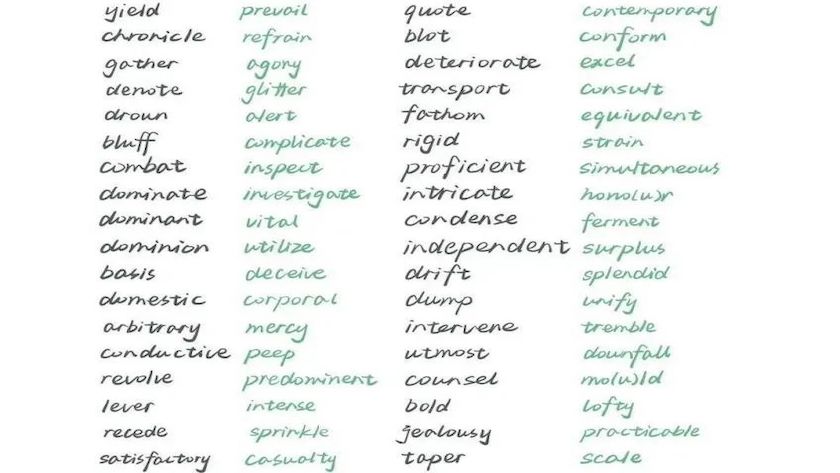 yield prevail quote contemporary
chronicle refrain blot conform
gather agony deteriorate excel
denote glitter transport consult
droun alert fathom equivalent
bluff complicate rigid strain
combat inspect proficient simultaneous
dominate investigate intricate hono(u)r
dominant vital condense ferment
dominion utilize independent surplus
basis deceive drift splendid
domestic corporal dump unify
arbitrary mercy intervene tremble
conductive peep utmost dounfall
revolve predominent counsel mo(u)ld
lever intense bold lofty
recede sprinkle jealousy practicable
satisfactory casualty taper scale